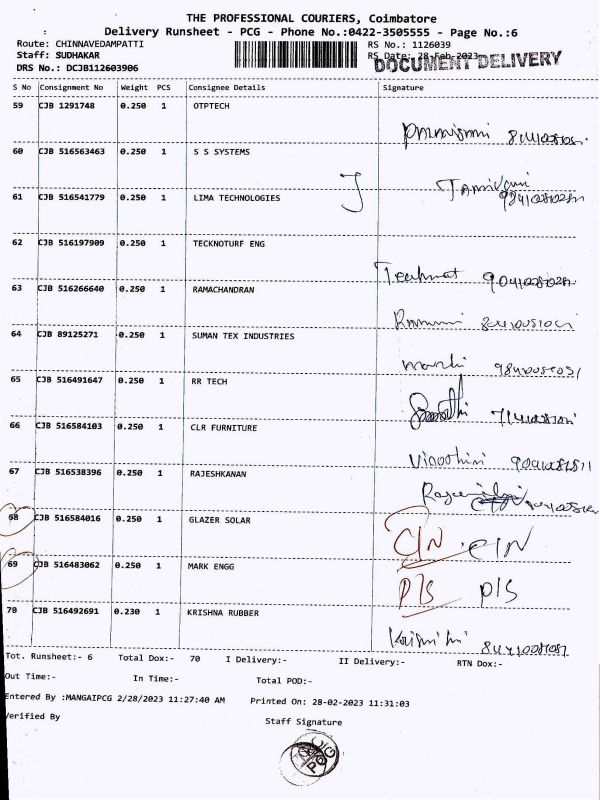 THE PROFESSIONAL COURIERS, Coimbatore
Delivery Runsheet - PCG - Phone No.:0422-3505555 - Page No.:6
Route: CHINNAVEDAMPATTI RS No.: 1126039
Staff: SUDHAKAR RS Date: 28-Feb-2023
DOCUMENT DELIVERY
DRS No.: DCJB112603906
S No Consignment No Weight PCS Consignee Details Signature
59 CJB 1291748 0.250 1 OTPTECH
60 CJB 516563463 0.250 1 S S SYSTEMS
61 CJB 516541779 0.250 1 LIMA TECHNOLOGIES
62 CJB 516197909 0.250 1 TECKNOTURF ENG
63 CJB 516266640 0.250 1 RAMACHANDRAN
64 CJB 89125271 0.250 1 SUMAN TEX INDUSTRIES
65 CJB 516491647 0.250 1 RR TECH
66 CJB 516584103 0.250 1 CLR FURNITURE
Vinothini
67 CJB 516538396 0.250 1 RAJESHKANAN
68 CJB 516584016 0.250 1 GLAZER SOLAR
C/N C/N
69 CJB 516483062 0.250 1 MARK ENGG
P/S P/S
70 CJB 516492691 0.230 1 KRISHNA RUBBER
Tot. Runsheet:- 6 Total Dox:- 70 I Delivery:- II Delivery:- RTN Dox:-
Out Time:- In Time:- Total POD:-
Entered By :MANGAIPCG 2/28/2023 11:27:40 AM Printed On: 28-02-2023 11:31:03
Verified By Staff Signature